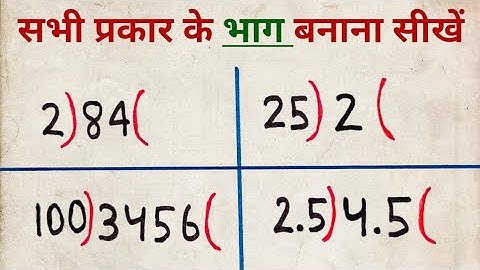 सभी प्रकार के भाग बनाना सीखें
2)84(
25)2(
100)3456(
2.5)4.5(